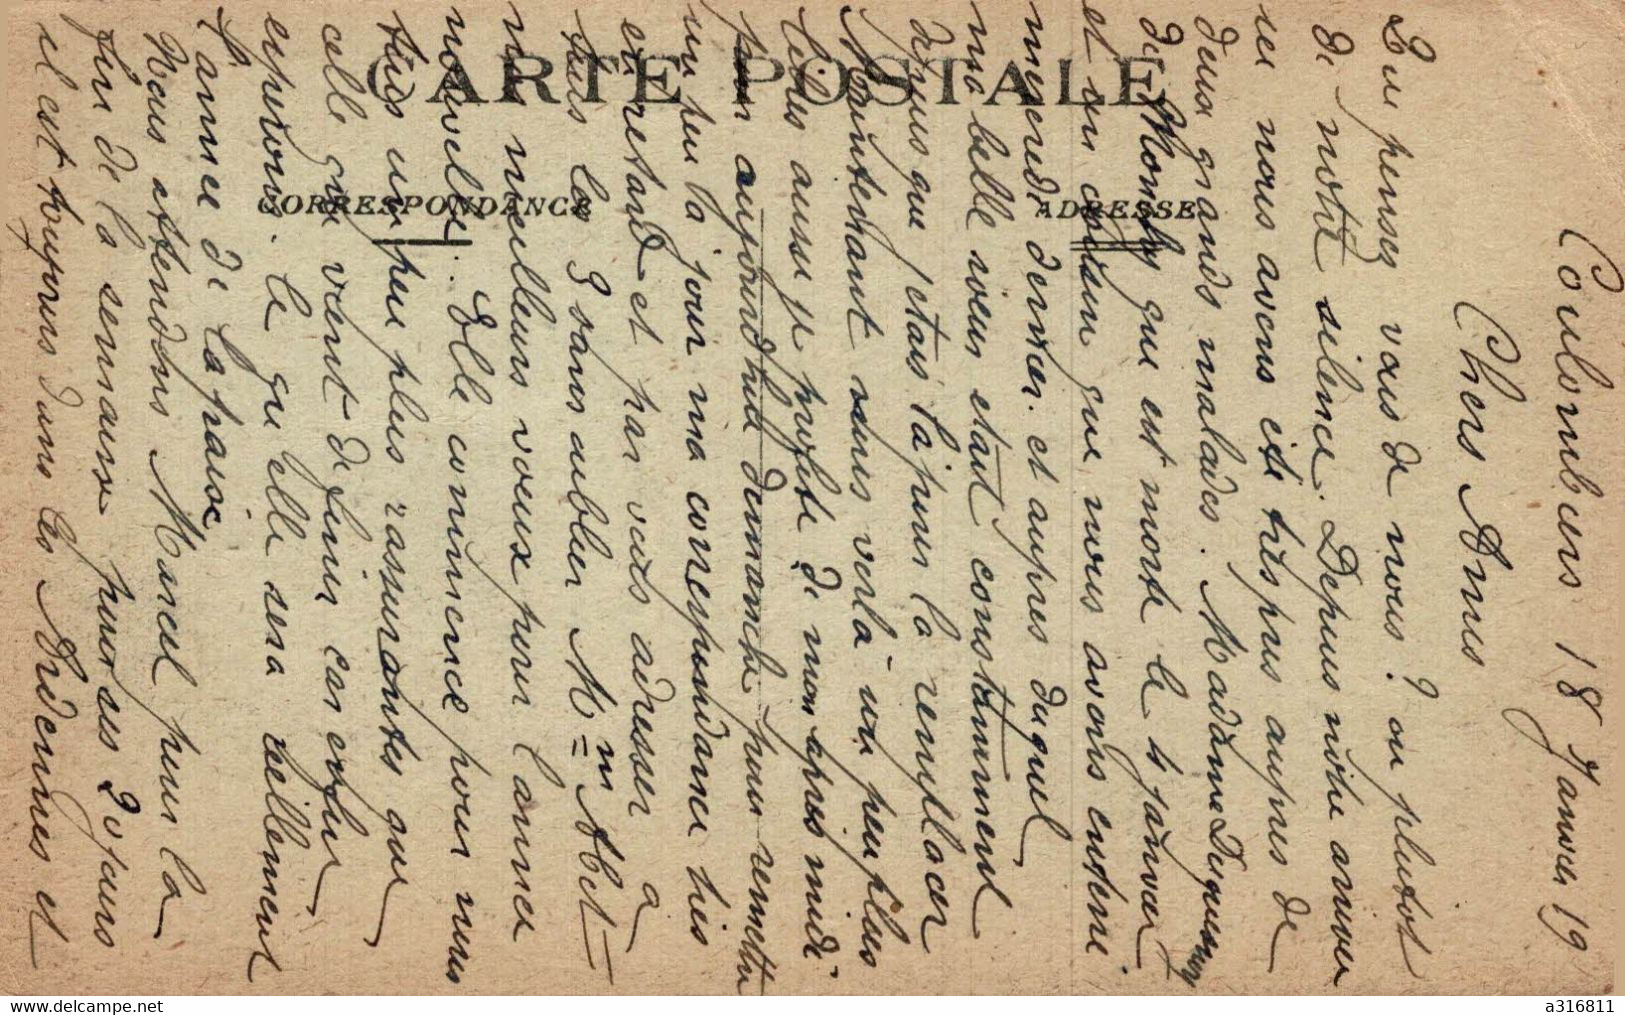 CARTE POSTALE
CORRESPONDANCE
ADRESSE
Coulombiers 18 Janvier 19
Chers Amis
Que pensez vous de nous ? ou plutot
de notre silence. Depuis notre arrivée
ici nous avons été très pris aupres de
deux grands malades. Madame Duguesnoy
de Momby que est morte le 4 janvier
et un cousin que nous avons enterré
mercredi dernier. et aupres duquel
ma belle soeur etait constamment
depuis que j'etais là pour la remplacer
Maintenant nous voila un peu plus
libres aussi je profite de mon apres midi
pour aujourd'hui dimanche pour remettre
un peu à jour ma correspondance très
en retard et par vous adresser a
tous les 3 sans oublier Mm Abet
nos meilleurs voeux pour l'année
nouvelle. Elle commence pour nous
tous un peu plus rassurante que
celle que vient de finir car enfin
esperons. le que elle sera réellement
l'année de la paix
Nous attendons Marcel pour la
fin de la semaine pour ses 20 jours
il est toujours dans les Ardennes et
a316811